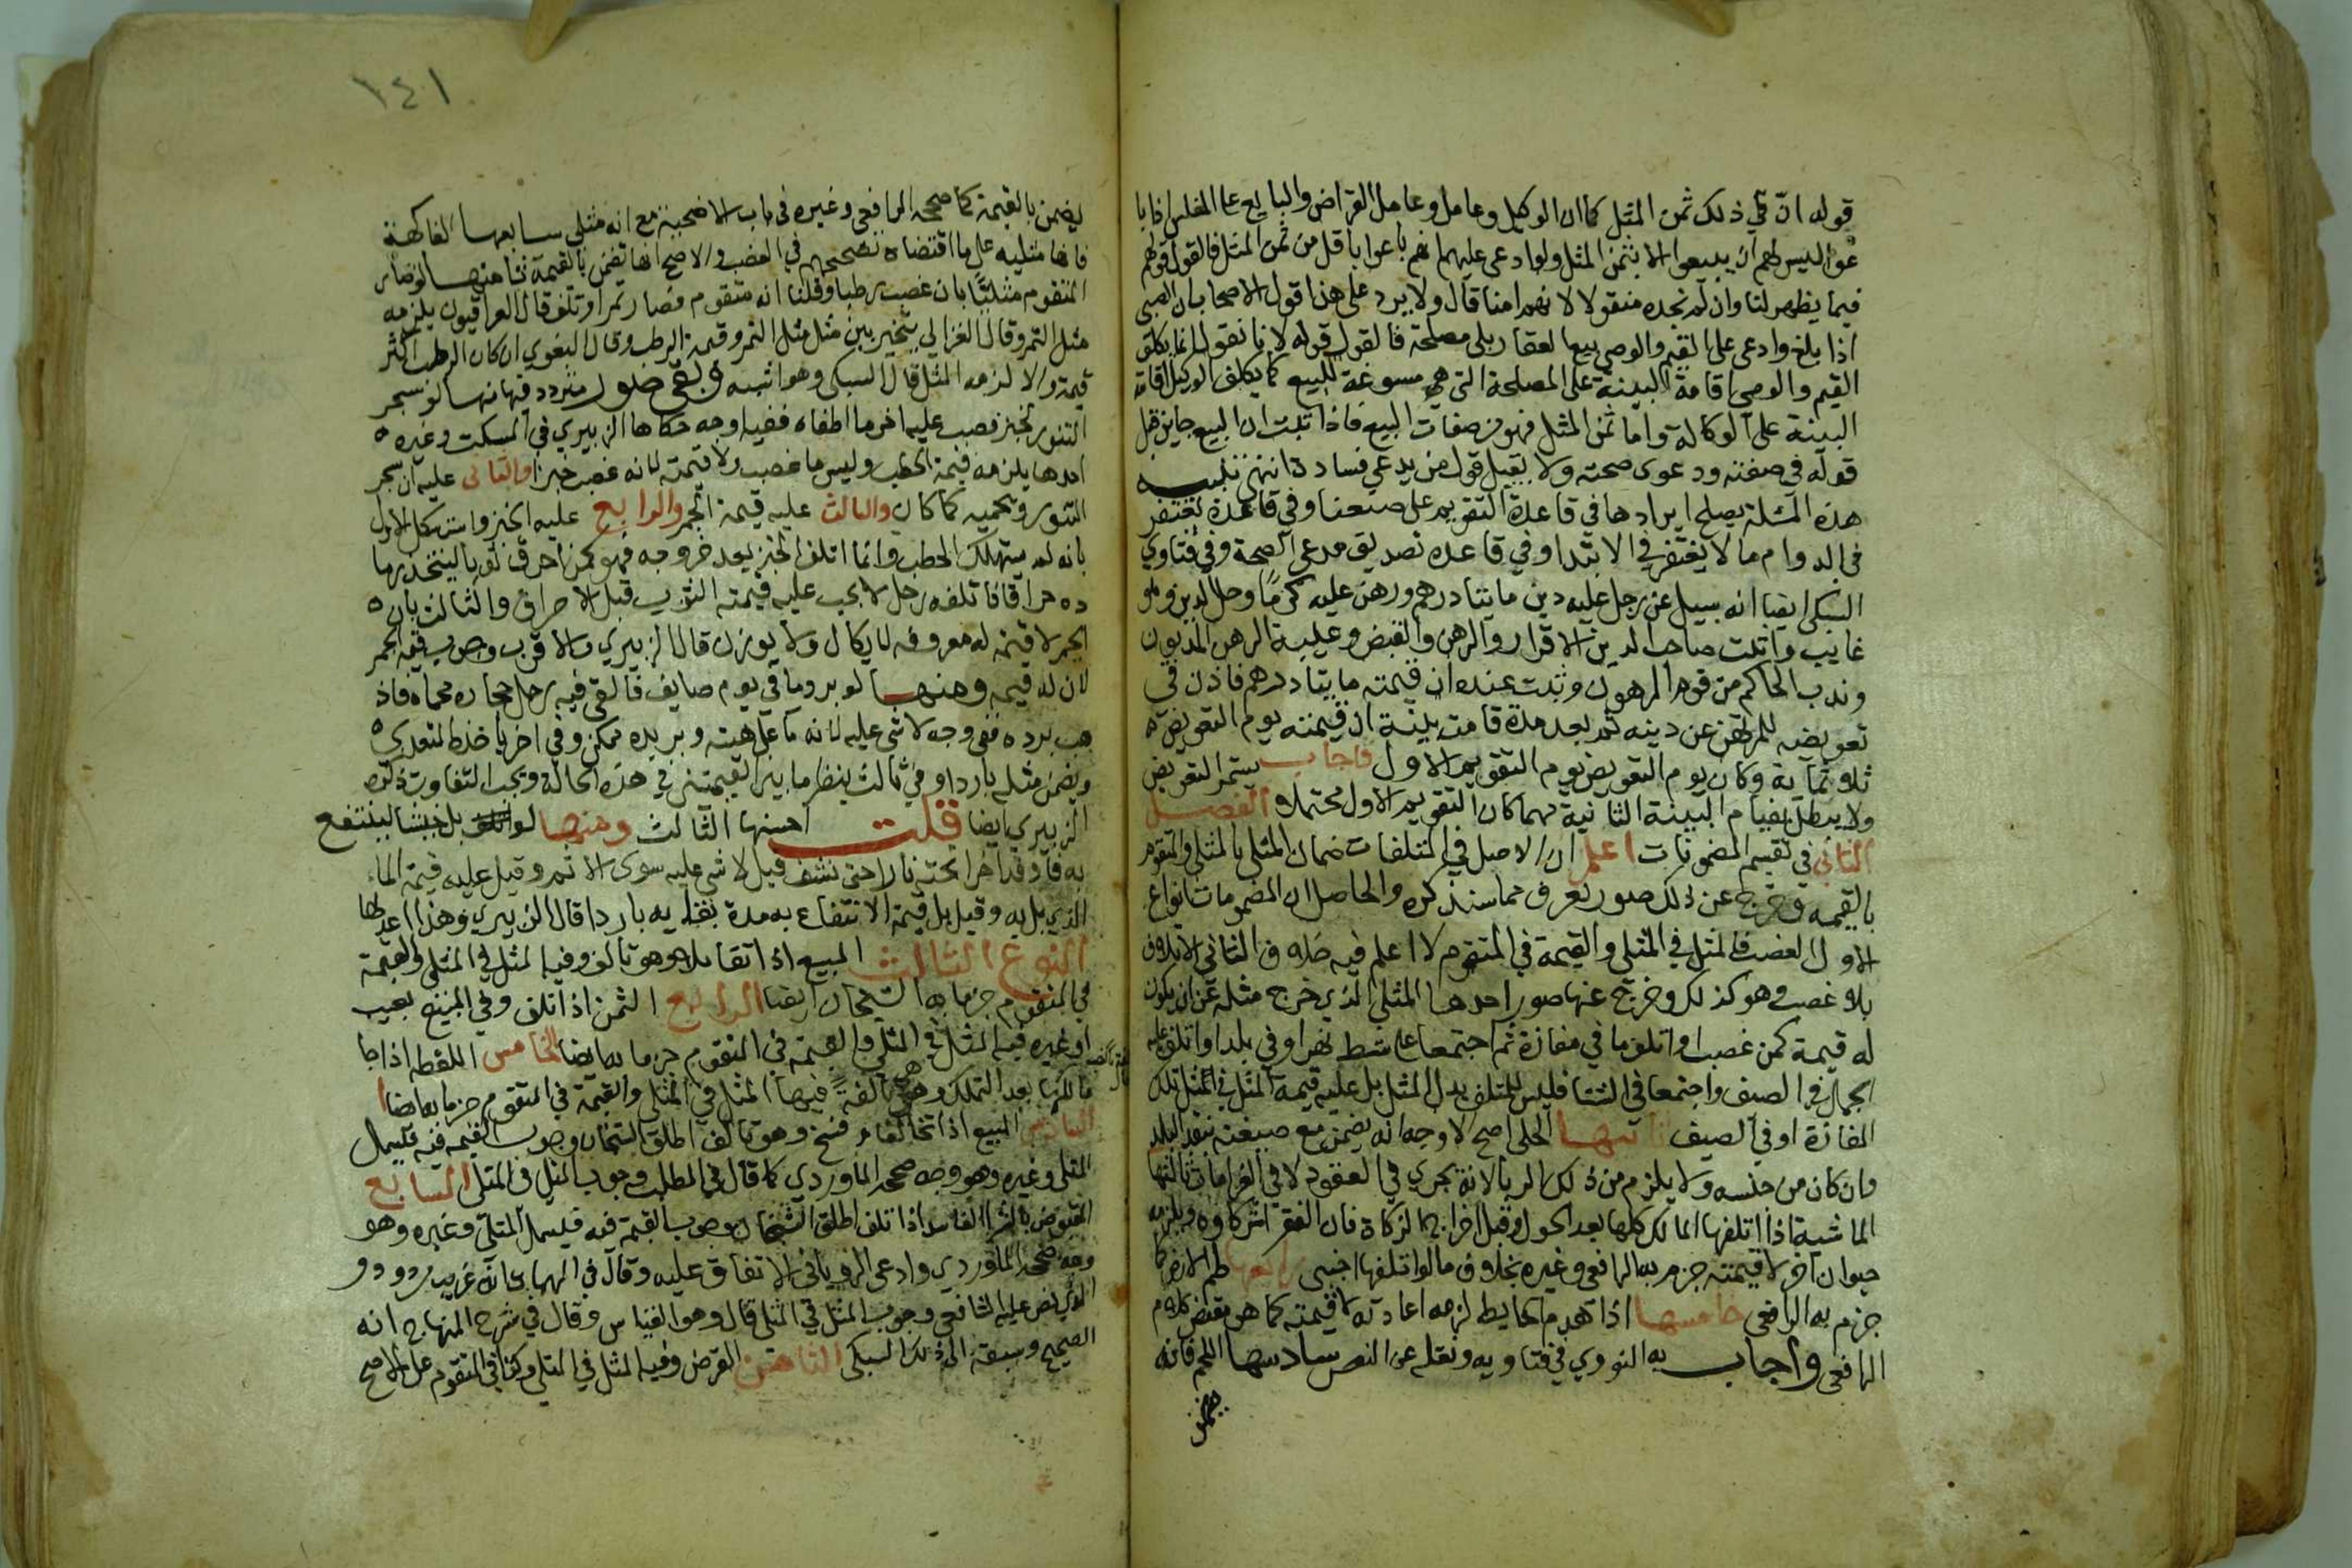 قوله انّ في ذلك ثمن المثل كما ان الوكيل وعامل وعامل القراض والبايع على المفلس اذا با
عوا ليس لهم ان يبيعوا الا بثمن المثل ولو ادعى عليهما انهم باعوا باقل من ثمن المثل فالقول قولهم
فيما يظهر لنا وان لم نجده منقولا لا نهم امنا قال ولا يرد على هذا قول الاصحاب ان الصبي
اذا بلغ وادعى على القيم والوصي بيعا لعقار بلى مصلحة فالقول قوله لا نا نقول انما يكلف
القيم والوصي اقامة البينة على المصلحة التي هي مسوغة للبيع كما يكلف الوكيل اقامة
البينة على الوكالة واما ثمن المثل فهو من صفات البيع فاذا ثبت ان البيع جايز قبل
قوله في صفته ودعوى صحته ولا يقبل قول من يدعي فساده انتهى تنبيه
هذه المسئلة يصلح ايرادها في قاعدة التقويم على صنعنا وفي قاعدة يغتفر
في الدوام ما لا يغتفر في الابتدا وفي قاعده تصديق مدعي الصحة وفي فتاوي
السبكي ايضا انه سيل عن رجل عليه دين مايتا درهم ورهن عليه كرمًا وحل الدين وهو
غايب واثبت صاحب الدين الاقرار والرهن والقبض وغيبة الراهن المديون
وندب الحاكم من قوم المرهون وثبت عنده ان قيمته مايتا درهم فاذن في
تعويضه للمرتهن عن دينه ثم بعد مدة قامت بينة ان قيمته يوم التعويض
ثلاثماية وكان يوم التعويض يوم التقويم الاول فاجاب يستمر التعويض
ولا يبطل بقيام البينة الثانية مهما كان التقويم الاول محتملا الفصل
الثاني في تقسيم المضمونات اعلم ان الاصل في المتلفات ضمان المثلي بالمثلي والمتقوم
بالقيمه وخرج عن ذلك صور تعرف مما سنذكره والحاصل ان المضمونات انواع
الاول الغصب فالمثل في المثلي والقيمة في المتقوم لا اعلم فيه خلاف الثاني الاتلاف
بلا غصب وهو كذلك وخرج عنها صور احدها المثلي الذي خرج مثله عن ان يكون
له قيمة كمن غصب او اتلف ما في مفازة ثم اجتمعا على شط نهر او في بلد او اتلف عليه
الجمد في الصيف واجتمعا في الشتا فليس للمتلف بدل المثل بل عليه قيمة المثل في مثل تلك
المفازة او في الصيف ثانيها الحلي اصح الاوجه انه يضمن مع صنعته بنقد البلد
وان كان من جنسه ولا يلزم من ذلك الربا لانه يجري في العقود لا في الغرامات ثالثها
الماشية اذا اتلفها المالك كلها بعد الحول وقبل اخراج الزكاة فان الفقراء شركاوه ويلزمه
حيوان آخر لا قيمته جزم به الرافعي وغيره بخلاف ما لو اتلفها اجنبي رابعها طم الارض كما
جزم به الرافعي خامسها اذا هدم الحايط لزمه اعادته لا قيمته كما هو مقتضى كلام
الرافعي واجاب به النووي في فتاويه ونقله عن النص سادسها اللحم فانه
يضمن
١٤١
يضمن بالقيمة كما صححه الرافعي وغيره في باب الاضحية مع انه مثلي سابعها الفاكهة
فانها مثليه على ما اقتضاه تصحيحهم في الغصب والاصح انها تضمن بالقيمة ثامنها لو صار
المتقوم مثليًا بان غصب رطبا وقلنا انه متقوم فصار تمرا وتلف قال العراقيون يلزمه
مثل التمر وقال الغزالي يتخير بين مثل مثل التمر وقيمة الرطب وقال البغوي ان كان الرطب اكثر
قيمة والا لزمه المثل قال السبكي وهو اشبه وبقي صور متردد فيها منها لو سجر
التنور ليخبز فصب عليه اخر ما اطفاه ففيه اوجه حكاها الزبيري في المسكت وغيره
احدها يلزمه قيمة الحطب وليس ما غصب ولا قيمته لانه غصب خبزا والثاني عليه ان يسجر
التنور ويحميه كما كان والثالث عليه قيمة الجمر والرابع عليه الخبز واستشكل الاول
بانه لم يستهلك الحطب وانما اتلف الخبز بعد خروجه فهو كمن احرق ثوبا ليتخذ رما
ده حراقا فاتلفه رجل لا يجب عليه قيمته الثوب قبل الاحراق والثالث بان
الجمر لا قيمة له معروفه لا يكال ولا يوزن قال الزبيري والاقرب وجوب قيمه الجمر
لان له قيمه ومنها لو برد ما في يوم صايف فالقى فيه رجل حجاره محماه فاذ
هب برده ففي وجه لا شي عليه لانه ما على هيته وتبريده ممكن وفي اخر ياخذه المتعدي
ويضمن مثله باردا وفي ثالث ينظر ما بين القيمتين في هذه الحالة ويجب التفاوت ذكره
الزبيري ايضا قلت احسنها الثالث ومنها لو بل خيشا لينتفع
به فاوقد اخر تحته نارا حتى نشف قيل لا شي عليه سوى الاثم وقيل عليه قيمة الماء
الذي بل به وقيل بل قيمة الانتفاع به مدة بقايه باردا قال الزبيري وهذا اعدلها
النوع الثالث المبيع اذا تقايلا وهو تالف وفيه المثل في المثلي والقيمة
في المتقوم جزما به الشيخان ايضا الرابع الثمن اذا تلف وفي المبيع بعيب
او غيره فيه المثل في المثلي والقيمة في المتقوم جزما به ايضا الخامس اللقطه اذا جا
مالكها بعد التملك وهي تالفةً فيها المثل في المثلي والقيمة في المتقوم جزما به ايضا
السادس البيع اذا تخالفا وفسخ وهو تالف اطلق الشيخان وجوب القيمه فيه فيشمل
المثلي وغيره وهو وجه صححه الماوردي كما قال في المطلب وجوب المثل في المثلي السابع
المقبوض بالشرا الفاسد اذا تلف اطلق الشيخان وجوب القيمة فيه فيشمل المثلي وغيره وهو
وجه صححه الماوردي وادعى الروياني الاتفاق عليه وقال في المهمات انه غريب مردود و
الذي نص عليه الشافعي وجوب المثل في المثلي قال وهو القياس وقال في شرح المنهاج انه
الصحيح وسبقه الى ذلك السبكي الثامن القرض وفيه المثل في المثلي وكذا في المتقوم على الاصح